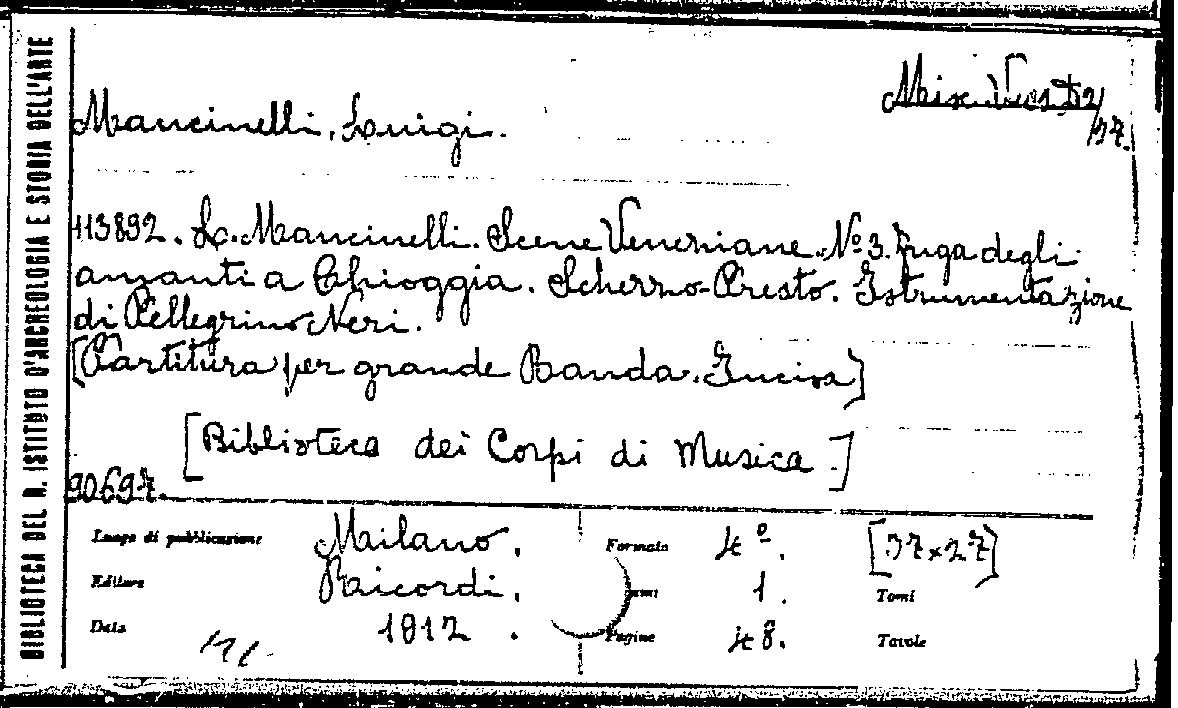 BIBLIOTECA DEL R. ISTITUTO D'ARCHEOLOGIA E STORIA DELL'ARTE
Mancinelli, Luigi.
113892. L. Mancinelli. Scene Veneziane. Nº 3. Fuga degli
amanti a Chioggia. Scherzo-Presto. Istrumentazione
di Pellegrino Neri.
[Partitura per grande Banda. Incisa]
[Biblioteca dei Corpi di Musica.]
90697.
Luogo di pubblicazione Milano. Formato 4º. [37x27]
Editore Ricordi. 1. Tomi
Data 1912. Pagine 48. Tavole